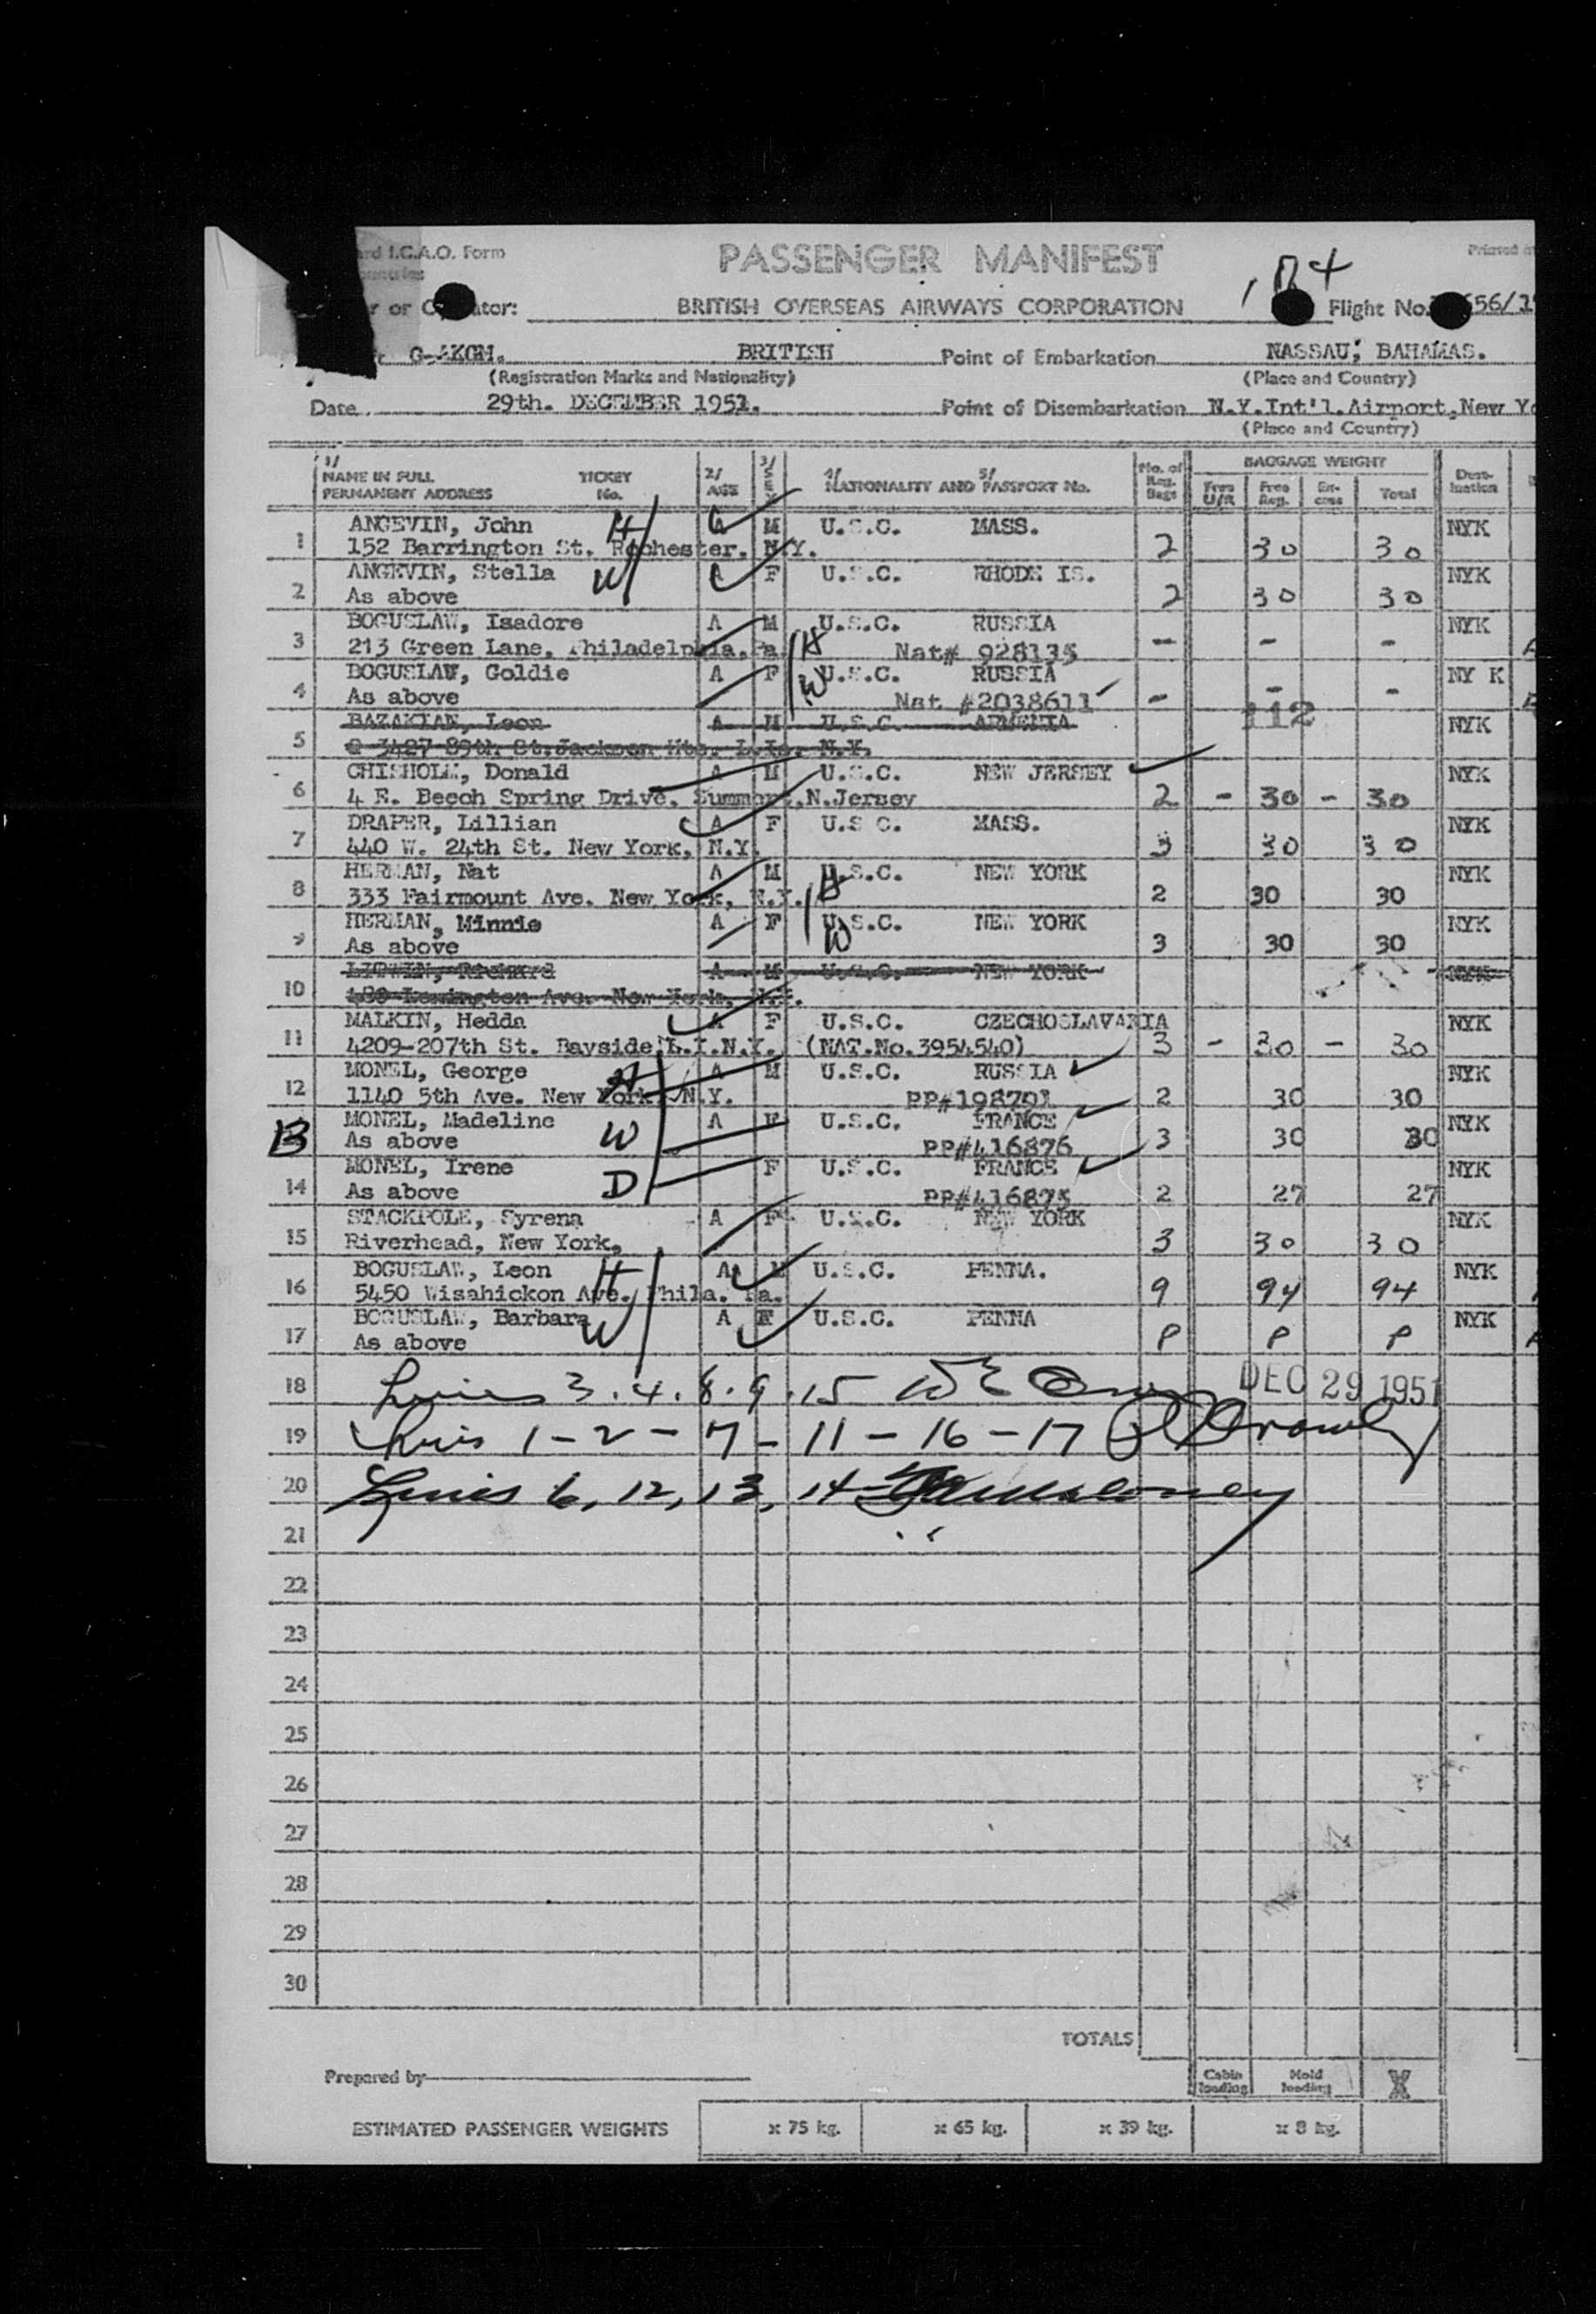 I.C.A.O. Form
PASSENGER MANIFEST
Printed
or
BRITISH OVERSEAS AIRWAYS CORPORATION
Flight No. 656/1
BRITISH Point of Embarkation NASSAU, BAHAMAS.
(Registration Marks and Nationality) (Place and Country)
Date 29th. DECEMBER 1951. Point of Disembarkation N.Y.Int'l.Airport,New Yo
(Place and Country)
1/ 2/ 3/ 4/ 5/ No. of BAGGAGE WEIGHT
NAME IN FULL TICKET AGE SEX NATIONALITY AND PASSPORT No. Reg. Free Free Ex- Total Dest-
PERMANENT ADDRESS No. Bags U/R Reg. cess ination
ANGEVIN, John H M U.S.C. MASS. NYK
1 152 Barrington St. Rochester. N.Y. 2 30 30
ANGEVIN, Stella W A F U.S.C. RHODE IS. NYK
2 As above 2 30 30
BOGUSLAW, Isadore A M U.S.C. RUSSIA NYK
3 213 Green Lane. Philadelphia.Pa. H Nat# 928135 - - -
BOGUSLAW, Goldie A F W U.S.C. RUSSIA NY K
4 As above Nat #2038611 - - -
112
BAZAKIAN, Leon A M U.S.C. ARMENIA NYK
5 3427 89th St.Jackson Hts. L.Is. N.Y.
CHISHOLM, Donald A M U.S.C. NEW JERSEY NYK
6 4 E. Beech Spring Drive. Summort,N.Jersey 2 - 30 - 30
DRAPER, Lillian A F U.S C. MASS. NYK
7 440 W. 24th St. New York, N.Y. 3 30 30
HERMAN, Nat A M U.S.C. NEW YORK NYK
8 333 Fairmount Ave. New York, N.Y. H 2 30 30
HERMAN, Minnie A F U.S.C. NEW YORK NYK
9 As above W 3 30 30
Richard A M U.S.C. NEW YORK NYK
10 480 Lexington Ave. New York, N.Y.
MALKIN, Hedda A F U.S.C. CZECHOSLAVAKIA NYK
11 4209-207th St. Bayside L.I.N.Y. (NAT.No.3954540) 3 - 30 - 30
MONEL, George H A M U.S.C. RUSSIA NYK
12 1140 5th Ave. New York N.Y. PP#198701 2 30 30
MONEL, Madeline A F U.S.C. FRANCE NYK
13 As above W PP#416876 3 30 30
MONEL, Irene F U.S.C. FRANCE NYK
14 As above D PP#416875 2 27 27
STACKPOLE, Syrena A F U.S.C. NEW YORK NYK
15 Riverhead, New York, 3 30 30
BOGUSLAW, Leon H A M U.S.C. PENNA. NYK
16 5450 Wisahickon Ave. Phila. Pa. 9 94 94
BOGUSLAW, Barbara W A F U.S.C. PENNA NYK
17 As above P P P
18 Lines 3.4.8.9.15 DEC 29 1951
19 Lines 1-2-7-11-16-17
20 Lines 6, 12, 13, 14
21
22
23
24
25
26
27
28
29
30
TOTALS
Prepared by Cabin loading Hold loading X
ESTIMATED PASSENGER WEIGHTS x 75 kg. x 65 kg. x 39 kg. x 8 kg.